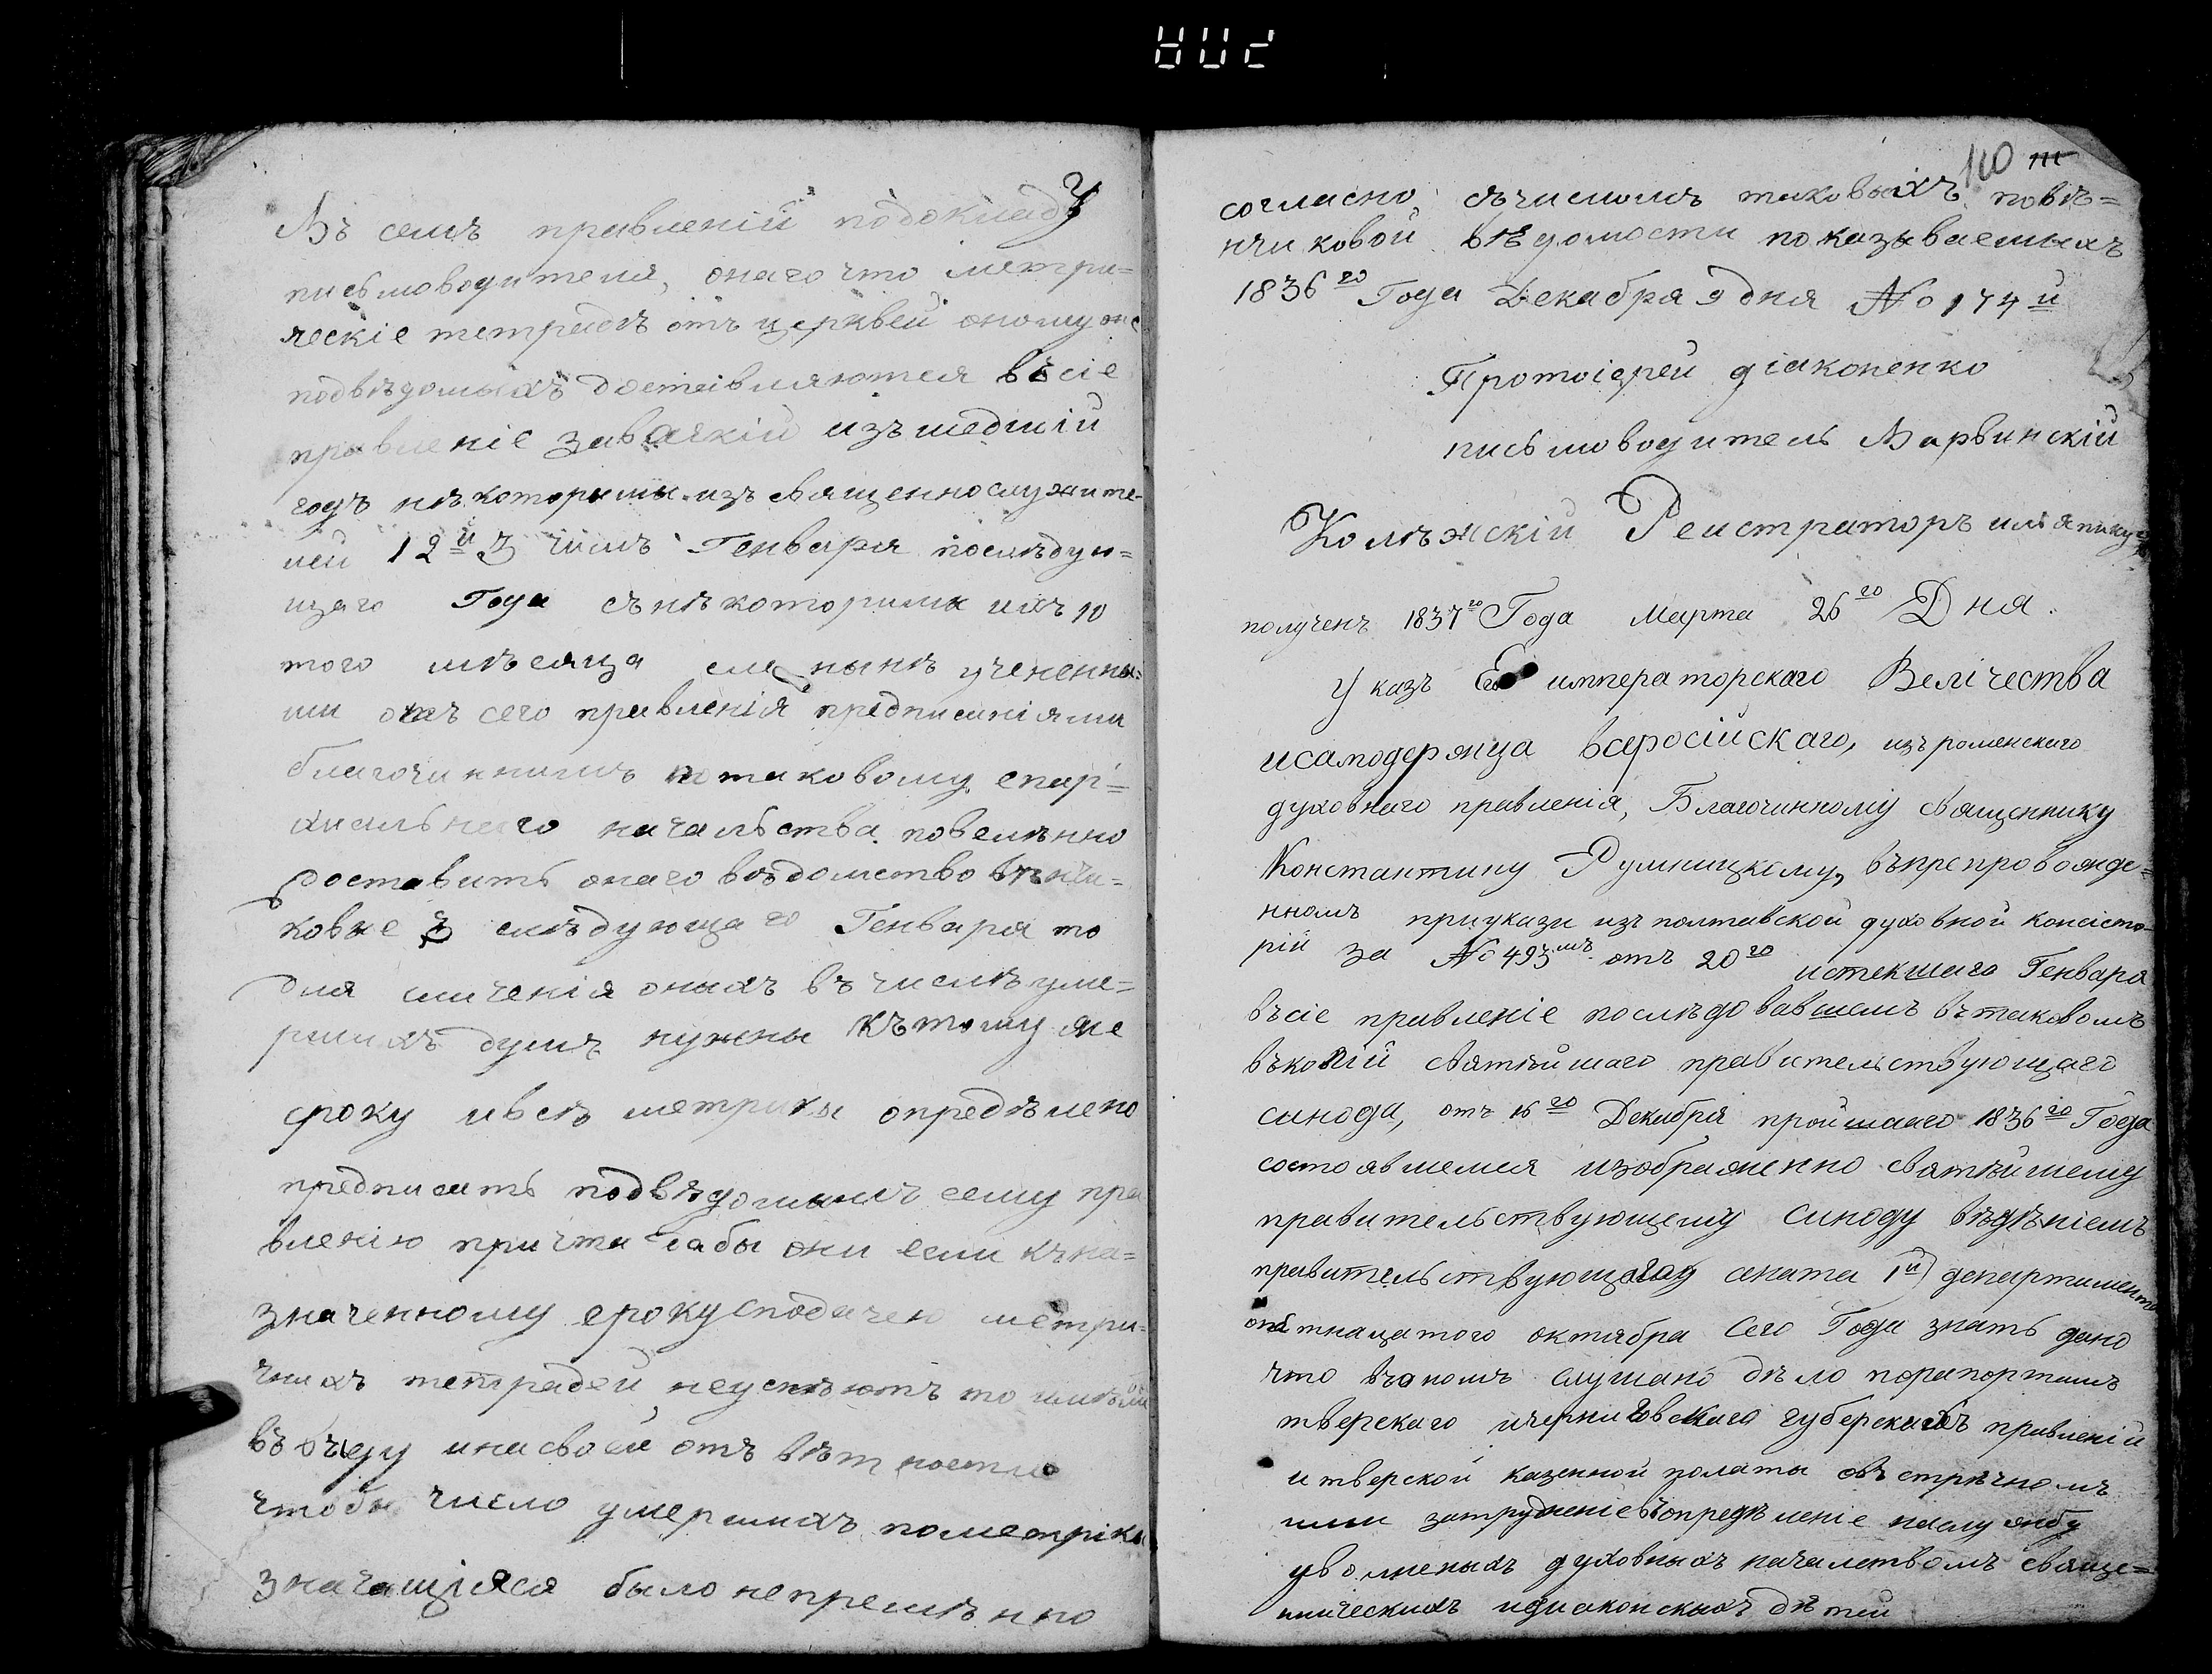 Въ семъ правленій подокладу
письмоводителя, онаго что метри=
ческіе тетрадѣ отъ церквей оному же
подвѣдомыхъ доставляются въсіе
правленіе завсягкій изъшедшій
годъ нѣкоторыми изъ священнослужите=
лей 12й З числъ Генваря послѣдую=
щаго Года сънѣкоторими ихъ 10
того мѣсяца нынѣ учененны=
ми отъ сего правленія предписаніями
благочиннимъ потаковому епар=
хиальнего начальства повелѣнно
доставить онаго вѣдомство вѣнчи=
ковые слѣдующаго Генваря то
для сличенія оныхъ въ числѣ уме=
ршихъ душъ нужны къ тому же
сроку ивсѣ метрики опредѣлено
предписать подвѣдомымъ сему пра
вленію причти дабы они если къна=
значенному сроку сподачею метри=
чнихъ тетрадей неуспѣютъ то имѣли
въ виду инасвоей отъ вѣтности
чтобы число умершихъ пометрікы
значащіяся было непремѣнно
110 111
согласно съчисломъ таковыхъ повѣ=
нчиковой вѣдомости показываемыхъ
1836го Года Декабря 9 дня №174й
Протоіерей діаконенко
письмоводитель Варвинскій
Колѣжскій Реистраторъ илья
полученъ 1837го Года Марта 26го Дня.
Указъ Его императорскаго Велічества
исамодержца всеросійскаго, изъ роменскаго
духовнаго правленія, Благочинному священнику
Константину Румницкому, въпрепровожде=
нномъ приукази изъ полтавской духовной консісто=
рій за №493мъ отъ 20го истекшаго Генваря
въсіе правленіе послѣдовавшемъ въ таковомъ
въкопій святѣйшаго правительствующаго
синода, отъ 16го Декабря пройшааго 1836го Года
состоявшемся изображенно святѣйшему
правительствующему синоду вѣдѣніемъ
правительствующаго сената 1й департаментъ
отъ тнацатого октября Сего Года знать дано
что въ ономъ слушано дѣло порапортамъ
тверскаго ичерниговскаго губерскихъ правленій
и тверской казенной полаты овъ стрѣчномъ
ими затрудненіе въопредѣленіе наслужбу
уволненыхъ духовныхъ началствомъ священ=
ническихъ идиаконскыхъ дѣтей